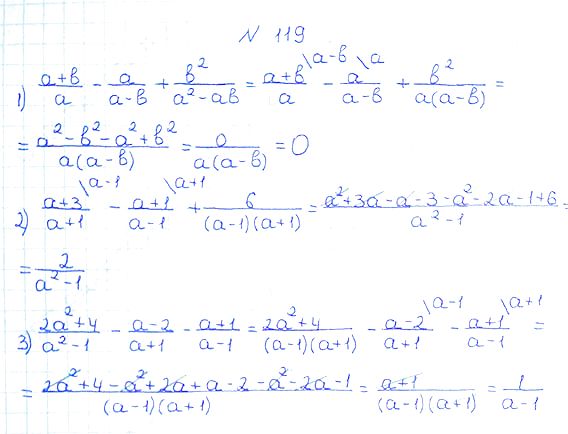 N 119
1) (a+b)/a - a/(a-b) + b²/(a²-ab) = (a+b)/a \a-b - a/(a-b) \a + b²/(a(a-b)) =
= (a²-b²-a²+b²)/(a(a-b)) = 0/(a(a-b)) = 0
2) (a+3)/(a+1) \a-1 - (a+1)/(a-1) \a+1 + 6/((a-1)(a+1)) = (a²+3a-a-3-a²-2a-1+6)/(a²-1) =
= 2/(a²-1)
3) (2a²+4)/(a²-1) - (a-2)/(a+1) - (a+1)/(a-1) = (2a²+4)/((a-1)(a+1)) - (a-2)/(a+1) \a-1 - (a+1)/(a-1) \a+1 =
= (2a²+4-a²+2a+a-2-a²-2a-1)/((a-1)(a+1)) = (a+1)/((a-1)(a+1)) = 1/(a-1)